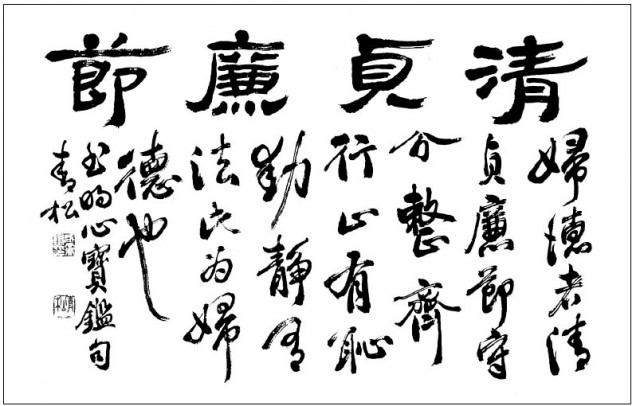 清貞廉節
婦德者清
貞廉節守
分整齊
行止有恥
動靜有
法此為婦
德也
書明心寶鑑句
青松